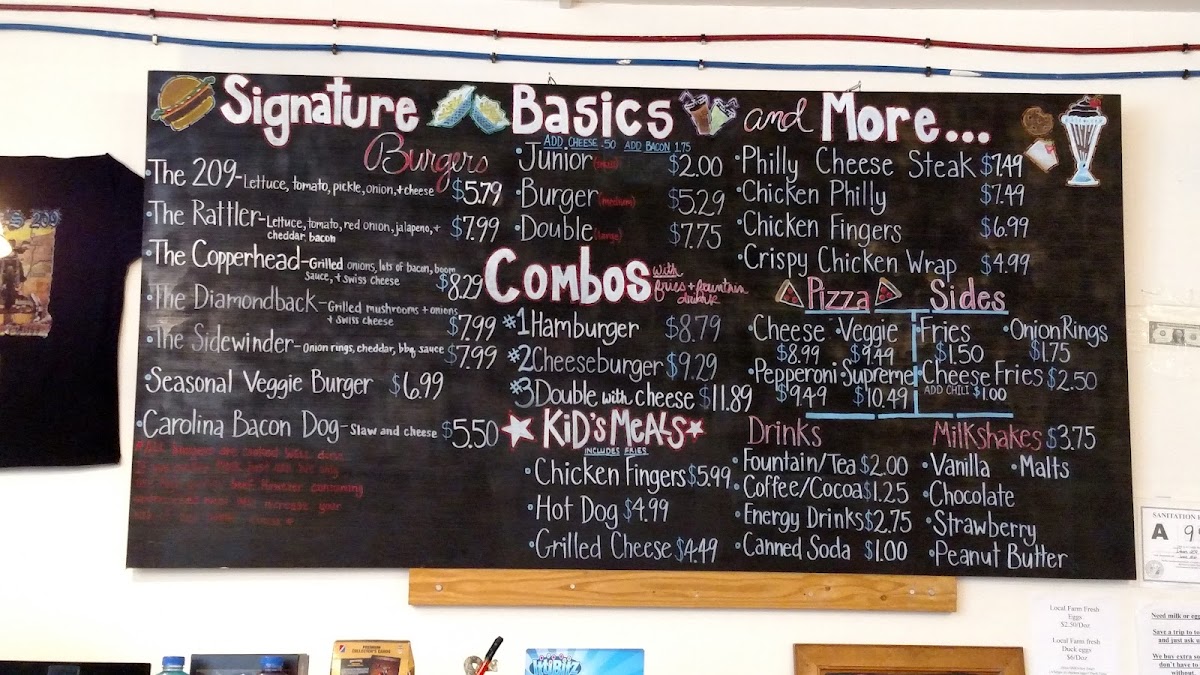 Signature Basics and More...
Burgers
•The 209-Lettuce, tomato, pickle, onion, + cheese $5.79
•The Rattler-Lettuce, tomato, red onion, jalapeno, +
cheddar, bacon $7.99
•The Copperhead-Grilled onions, lots of bacon, boom
sauce, + swiss cheese $8.29
•The Diamondback-Grilled mushrooms + onions
+ swiss cheese $7.99
•The Sidewinder-Onion rings, cheddar, bbq, sauce $7.99
Seasonal Veggie Burger $6.99
•Carolina Bacon Dog-Slaw and cheese $5.50
ADD CHEESE .50 ADD BACON 1.75
•Junior $2.00
•Burger (medium) $5.29
•Double (large) $7.75
Combos with
fries + fountain
drink
#1 Hamburger $8.79
#2 Cheeseburger $9.29
#3 Double with cheese $11.89
KiD'S MEALS
INCLUDES FRIES
•Chicken Fingers $5.99
•Hot Dog $4.99
•Grilled Cheese $4.49
•Philly Cheese Steak $7.49
•Chicken Philly $7.49
•Chicken Fingers $6.99
•Crispy Chicken Wrap $4.99
Pizza
•Cheese •Veggie
$8.99 $9.49
•Pepperoni •Supreme
$9.49 $10.49
Sides
•Fries •Onion Rings
$1.50 $1.75
•Cheese Fries $2.50
ADD CHILI $1.00
Drinks
•Fountain/Tea $2.00
•Coffee/Cocoa $1.25
•Energy Drinks $2.75
•Canned Soda $1.00
Milkshakes $3.75
•Vanilla •Malts
•Chocolate
•Strawberry
•Peanut Butter
209
SANITATION
A 9
Local Farm Fresh
Eggs
$2.50/Doz
Local Farm fresh
Duck eggs
$6/Doz
Need milk or
Save a trip to
and just ask
We buy extra
don't have to
without